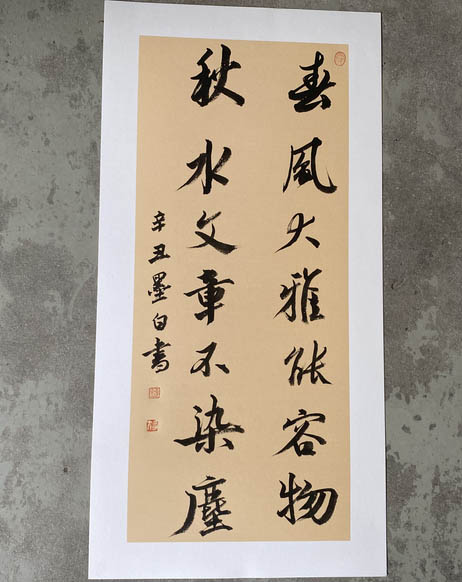 春風大雅能容物
秋水文章不染塵
辛丑墨白書